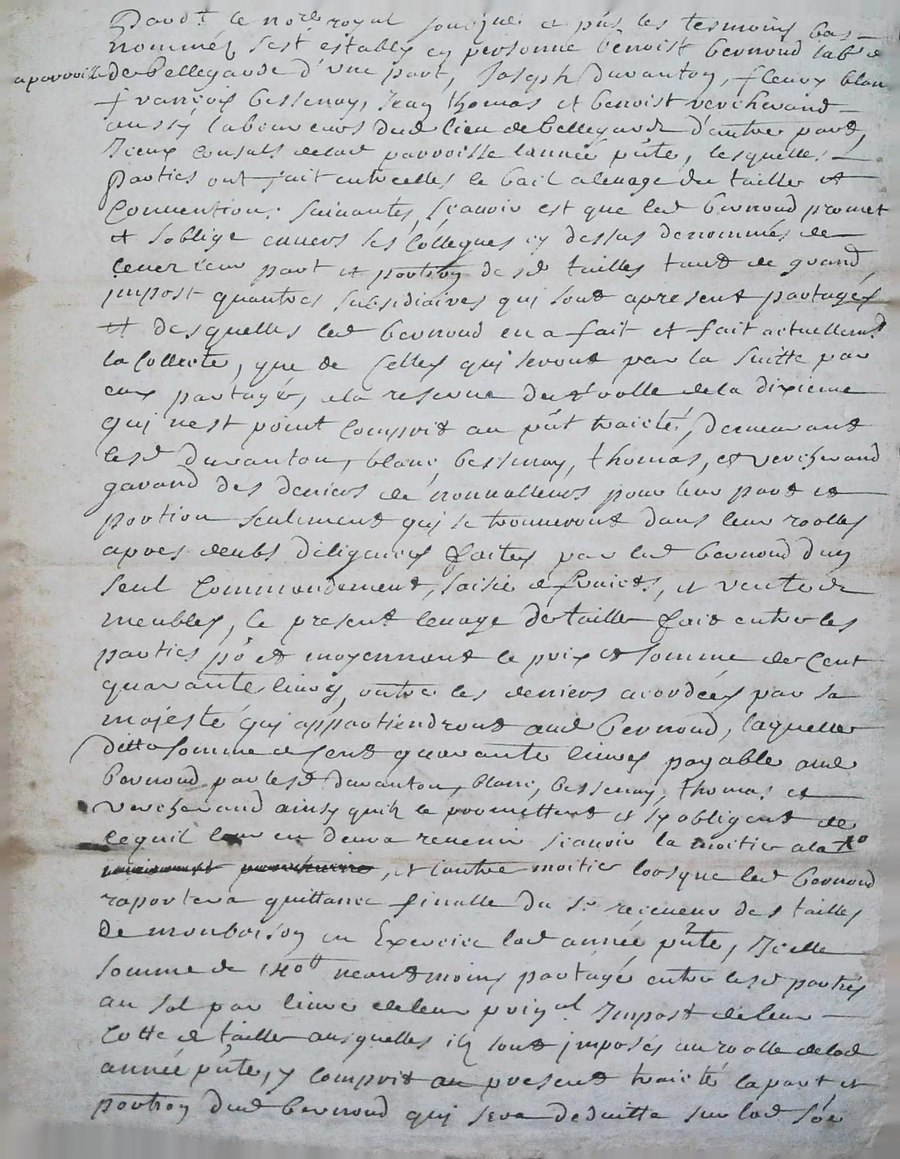 Pard.t le no.re royal soubzné et p̃ns les tesmoins bas
nommez s'est estably en personne benoist bernoud lab.r de
la parroisse de bellegarde d'une part, Joseph duranton, fleury blanc
françois bessenay, Jean thomas et benoist vercherand
aussy laboureurs dud lieu de bellegarde d'autre part,
Iceux consuls delad parroisse lannée p̃nte, lesquelles
parties ont fait entrelles le bail a levage des tailles et
Conventions suivantes, scavoir est que led bernoud promet
et soblige envers ses collegues cy dessus denommés de
lever leur part et portion desd tailles tant de grand
impost quautres subsidiaires qui sont apresent partagés
et desquelles led bernoud en a fait et fait actuellem.t
la collecte, que de celles qui seront par la suitte par
eux partagés, ala reserve dud rolle dela dixieme
qui nest point compris au p̃nt traicté, demeurant
lesd duranton, blanc, bessenay, thomas, et vercherand
garand des deniers de nonvalleurs pour leur part et
portion seulement qui se trouveront dans leur rolles
apres deubs diligences faites par led bernoud d'un
seul commandement, saisie et fraicts, et vente de
meubles, le present levage de tailles fait entre les
parties po et moyennant le prix et somme de cent
quarante livres, outre les deniers acordées par sa
majesté qui appartiendront aud bernoud, laquelle
ditte somme de cent quarante livres payable aud
bernoud par lesd duranton, blanc, bessenay, thomas et
vercherand ainsy quils le promettent et sy obligent de
ce quil leur en devra revenir scavoir la moitier ala
, et lautre moitier lorsque led bernoud
raportera quittance finalle du sr receveur des tailles
de monbrison en Exercice lad année p̃nte, Icelle
somme de 140tt neantmoins partagée entre lesd parties
au sol par livre deleur prin.al Impost deleur
cotte de tailles ausquelles ils sont imposés au rolle delad
année p̃nte, y compris au present traicté la part et
portion dud bernoud qui sera deduitte sur lad so͂e